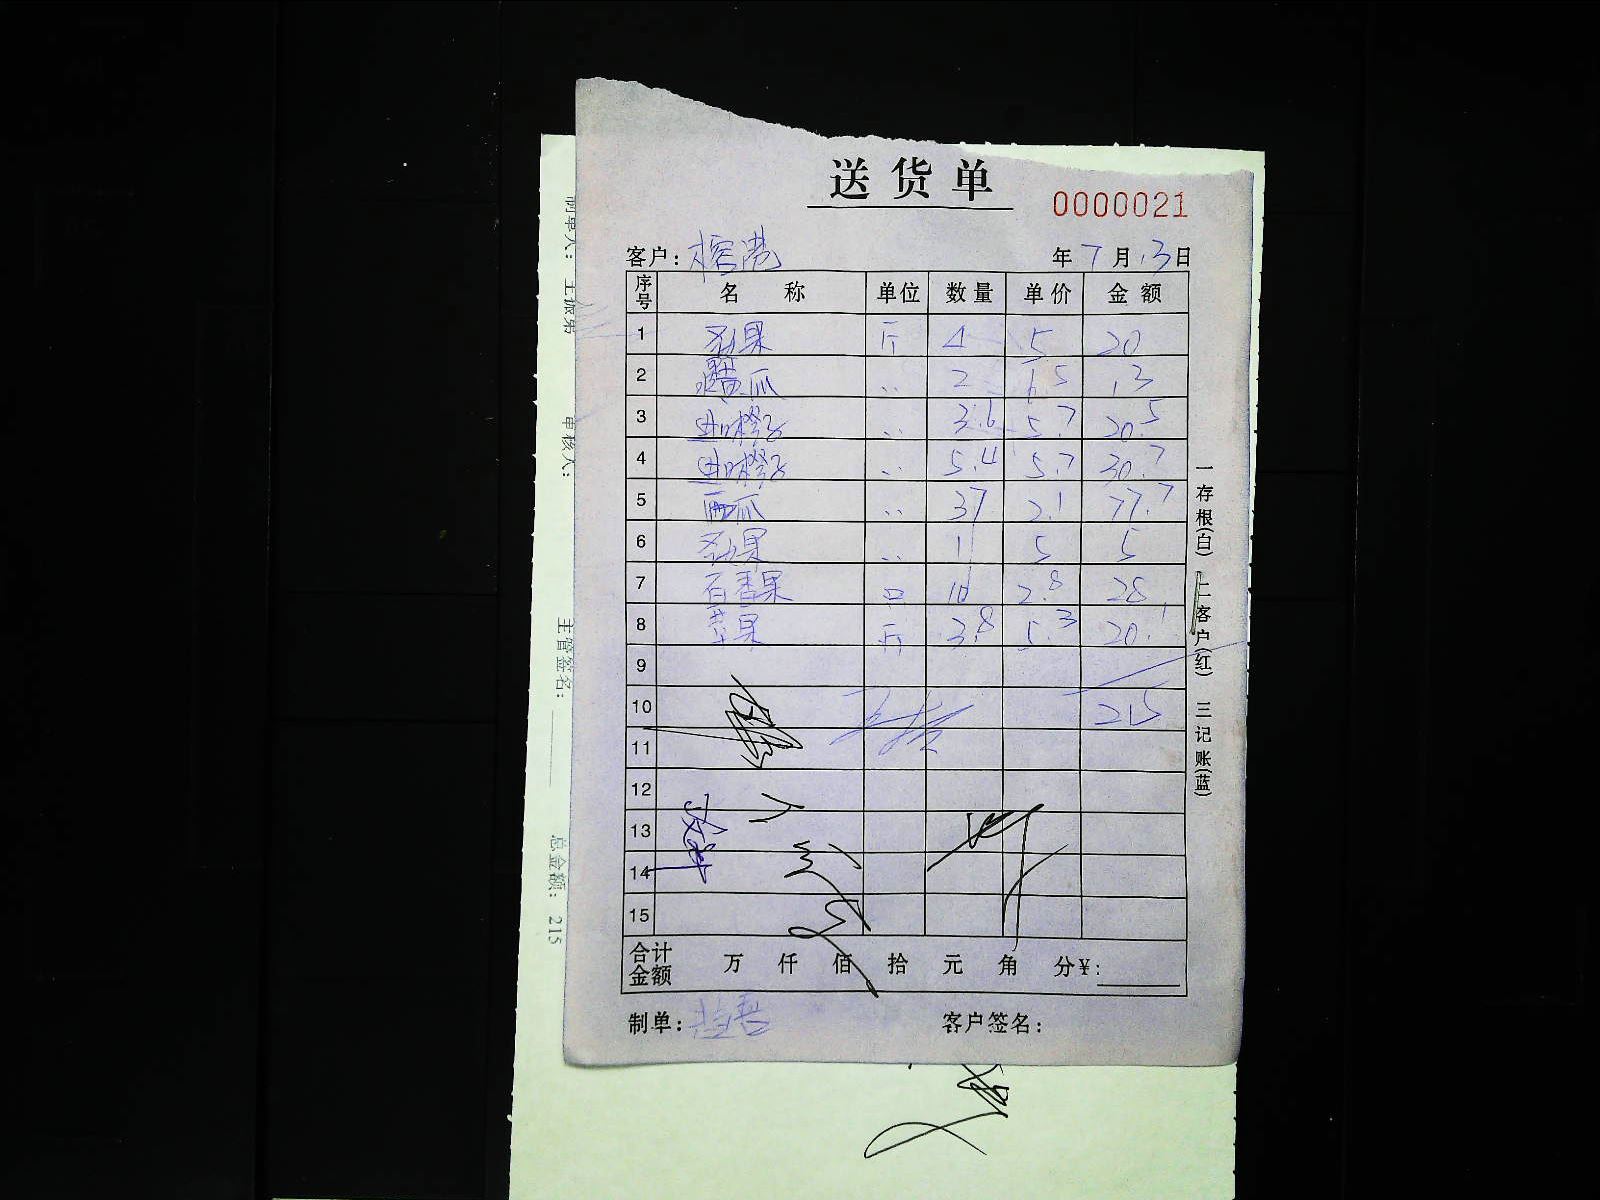 送货单
0000021
客户: 榕港 年 7 月 13 日
序号 名称 单位 数量 单价 金额
1 圣女果 斤 4 5 20
2 黄瓜 〃 2 6.5 13
3 进口橙子 〃 3.6 5.7 20.5
4 进口橙子 〃 5.4 5.7 30.7
5 西瓜 〃 37 2.1 77.7
6 圣女果 〃 1 5 5
7 百香果 只 10 2.8 28
8 苹果 斤 3.8 5.3 20.1
9
10 215
11
12
13
14
15
合计金额 万 仟 佰 拾 元 角 分 ¥:
制单: 客户签名:
一存根(白) 二客户(红) 三记账(蓝)
制单人: 王振弟 审核人: 主管签名: 总金额: 215